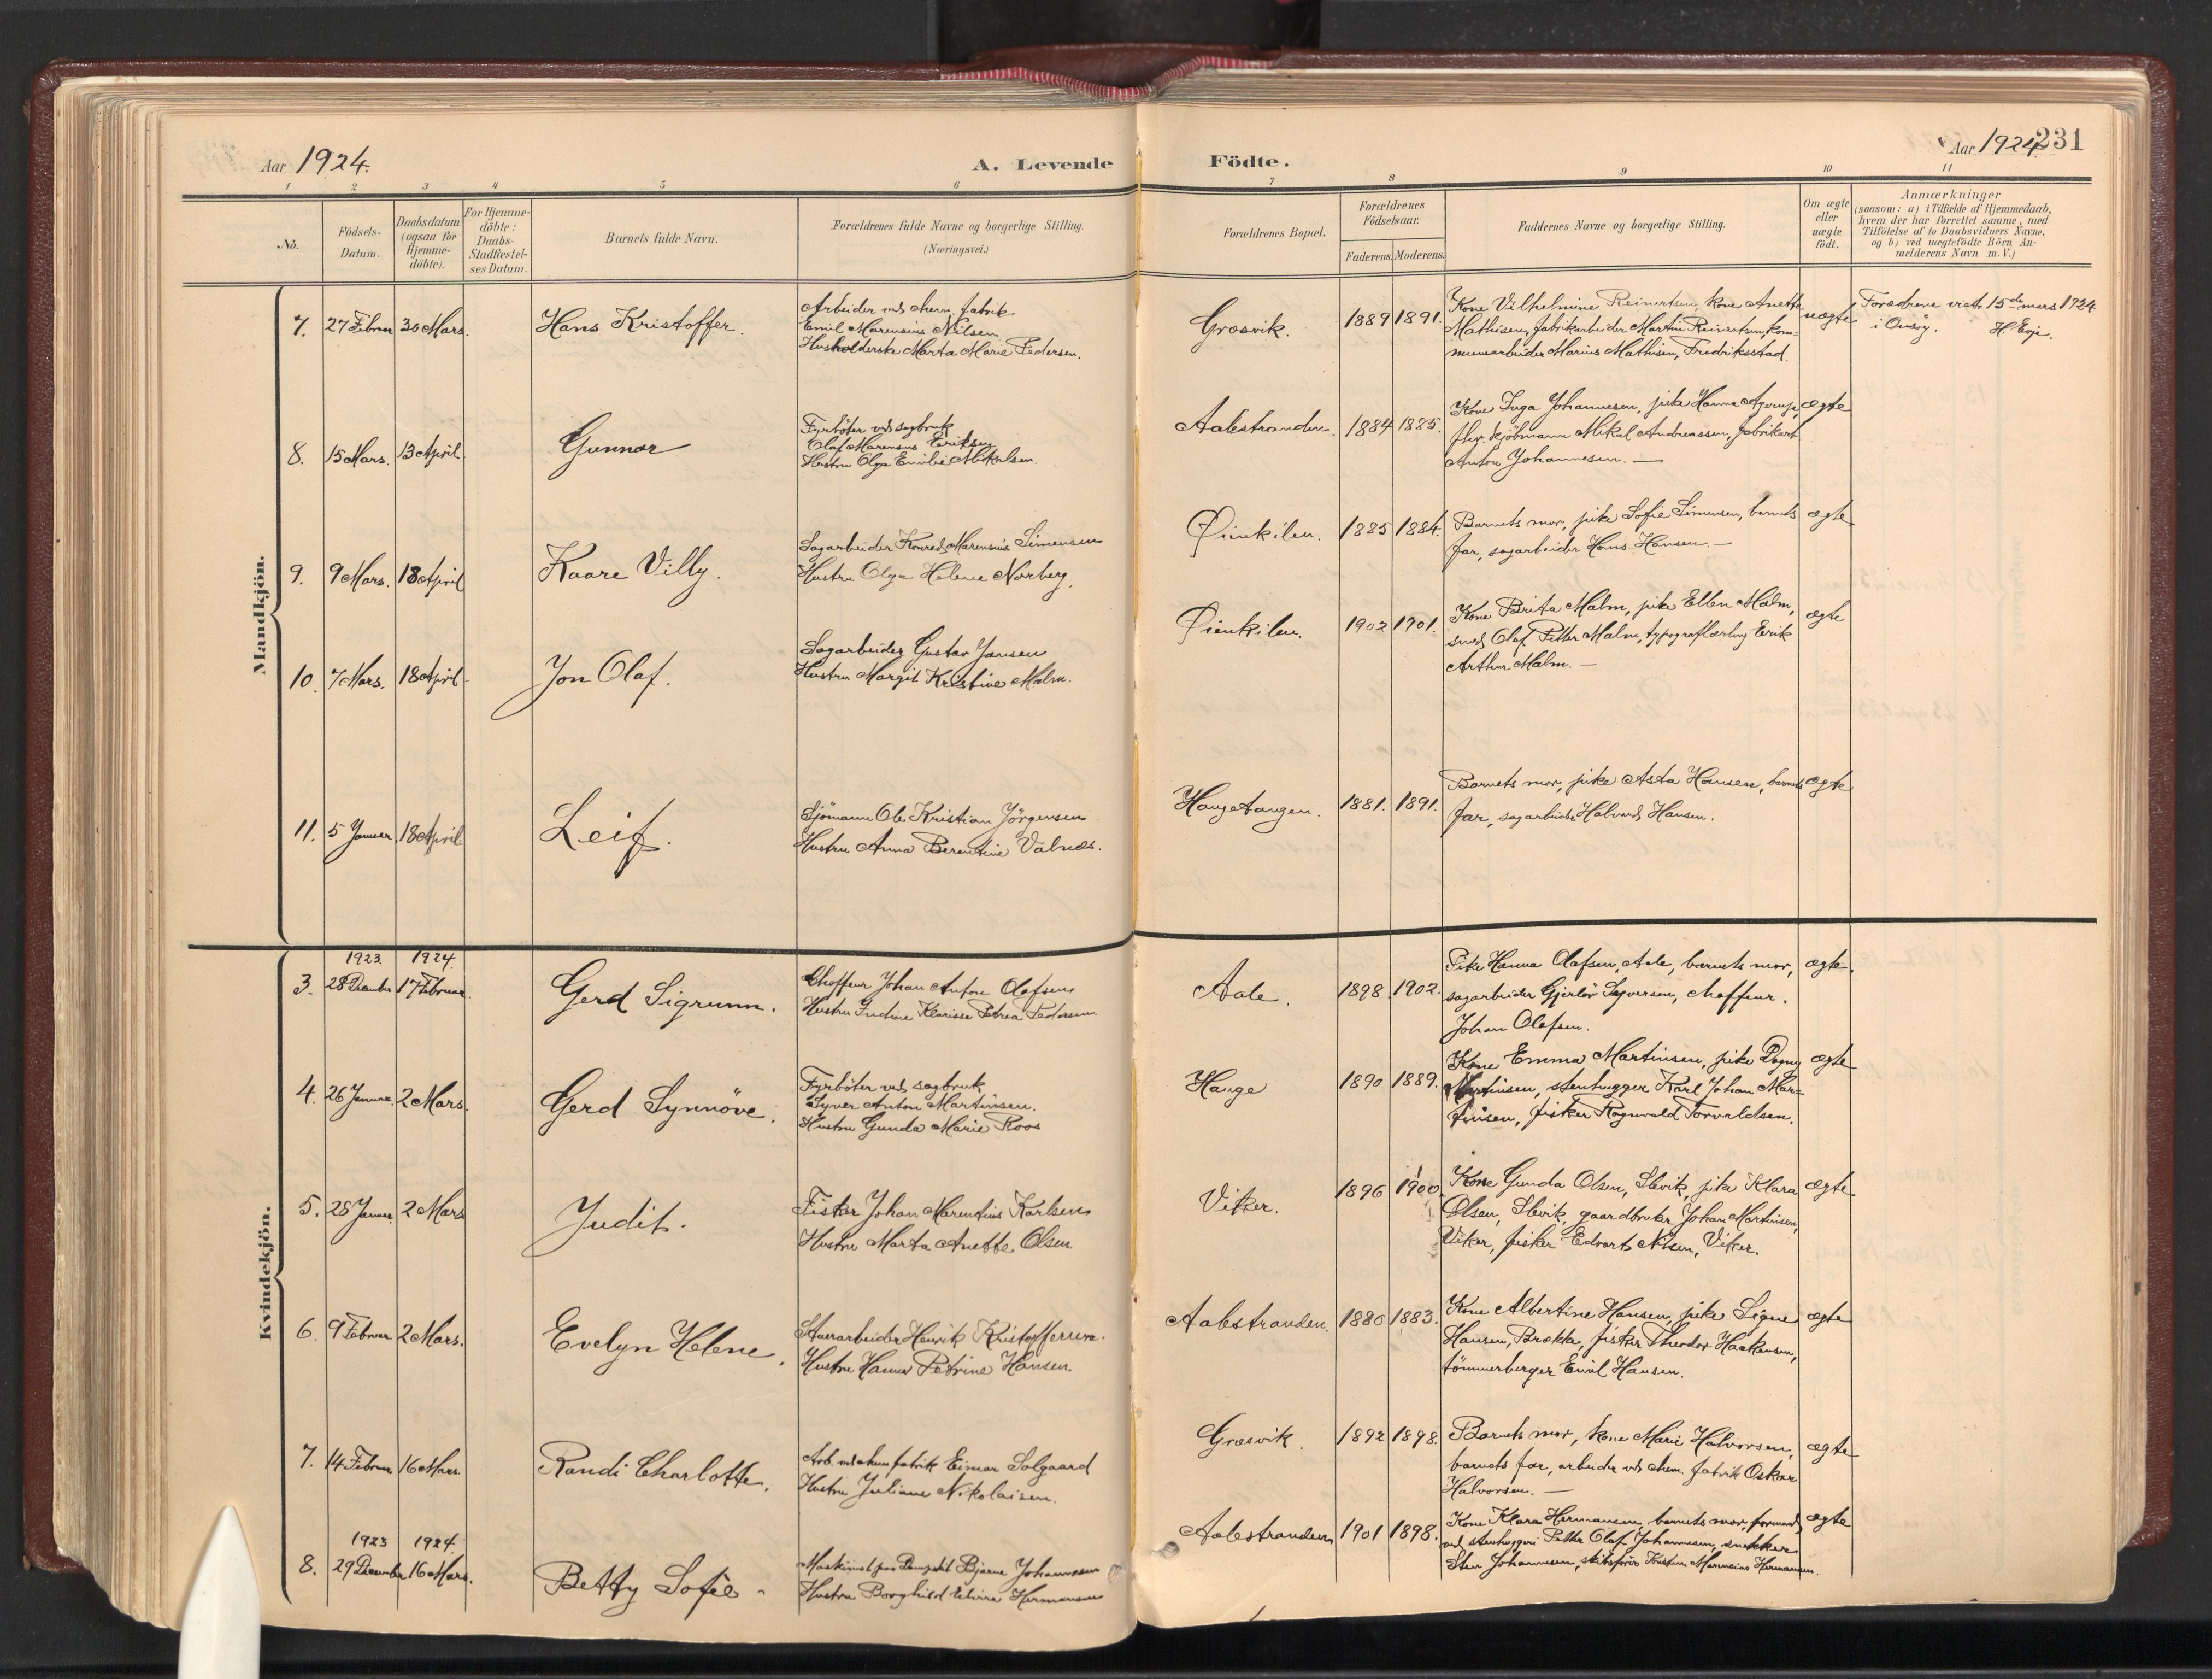 Aar 1924.
A. Levende Födte.
Aar 1924
231
1 2 3 4 5 6 7 8 9 10 11
No.
Födsels-
Datum.
Daabsdatum
(ogsaa for
Hjemme-
döbte).
For Hjemme-
döbte:
Daabs-
Stadfæstel-
ses Datum.
Barnets fulde Navn.
Forældrenes fulde Navne og borgerlige Stilling.
(Næringsvei.)
Forældrenes Bopæl.
Forældrenes
Födselsaar.
Faderens. Moderens.
Faddernes Navne og borgerlige Stilling.
Om ægte
eller
uægte
födt.
Anmærkninger
(saasom: a) i Tilfælde af Hjemmedaab,
hvem der har forrettet samme, med
Tilföielse af to Daabsvidners Navne,
og b) ved uægtefödte Börn An-
melderens Navn m. V.)
Mandkjön.
7. 27 Februar 30 Mars. Hans Kristoffer.
Arbeider ved chem. fabrik
Emil Marensius Nilsen
Husholderske Marta Marie Pedersen.
Gresvik. 1889 1891.
Kone Vilhelmine Reinertsen, kone Anette
Mathisen, fabrikarbeider Martin Reinertsen, kom-
munearbeider Marius Mathisen, Fredriksstad.
uægte
Forældrene viet 15de mars 1924
i Onsöy. H. Evje.
8. 15 Mars. 13 April Gunnar
Fyrböter ved sagbruk
Olaf Marensius Eriksen
Hustru Olga Emilie Mikalsen.
Aalestranden. 1884 1885.
Kone Inga Johannesen, pike Hanna Agerup,
fhv. kjöbmann Mikal Andreassen, fabrikarb
Anton Johannesen. —
ægte
9. 9 Mars. 18 April Kaare Villy.
Sagarbeider Konrad Marensius Simensen
Hustru Olga Helene Norberg.
Öienkilen. 1885 1884.
Barnets mor, pike Sofie Simensen, barnets
far, sagarbeider Hans Hansen. —
ægte
10. 7 Mars. 18 April Jon Olaf.
Sagarbeider Gustav Jansen
Hustru Margit Kristine Malm.
Öienkilen. 1902 1901.
Kone Berita Malm, pike Ellen Malm,
smed Olaf Petter Malm, typograflærling Erik
Arthur Malm. —
ægte
11. 5 Januar 18 April Leif.
Sjömann Ole Kristian Jörgensen
Hustru Anna Berentine Valnes.
Haugetangen. 1881. 1891.
Barnets mor, pike Asta Hansen, barnets
far, sagarbeider Halvard Hansen.
ægte
Kvindekjön.
1923 1924.
3. 28 December 17 Februar. Gerd Sigrunn.
Chaffeur Johan Anton Olafsen
Hustru Klarisse Petrea Pedersen
Aale. 1898. 1902.
Pike Hanna Olafsen, Aale, barnets mor,
sagarbeider Gjerlöv Syversen, chaffeur.
Johan Olafsen.
ægte.
4. 26 Januar. 2 Mars. Gerd Synnöve.
Fyrböter ved sagbruk
Syver Anton Martinsen.
Hustru Gunda Marie Roos
Hauge 1890 1889.
Kone Emma Martinsen, pike Dagny
Martinsen, stenhugger Karl Johan Mar-
tinsen, fisker Ragnvald Torvaldsen.
ægte
5. 28 Januar. 2 Mars Judit.
Fisker Johan Marentius Karlsen
Hustru Marta Anette Olsen
Viker. 1896 1900.
Kone Gunda Olsen, Slevik, pike Klara
Olsen, Slevik, gaardbruker Johan Martinisen,
Viker, fisker Edvart Nilsen, Viker.
ægte
6. 9 Februar 2 Mars. Evelyn Helene.
Stuerarbeider Henrik Kristoffersen.
Hustru Hanna Petrine Hansen
Aalestranden. 1880 1883.
Kone Albertine Hansen, pike Signe
Hansen, Brekke, fisker Theodor Haakensen,
tömmerberger Emil Hansen.
ægte
7. 14 Februar 16 Mars. Randi Charlotte.
Arb. ved chem fabrik Einar Solgaard
Hustru Juliane Nikolaisen.
Gresvik. 1892 1898.
Barnets mor, kone Marie Halvorsen,
barnets far, arbeider ved chem. fabrik Oskar
Halvorsen. —
ægte
1923 1924.
8. 29 December 16 Mars. Betty Sofie
Maskinist paa Bjarne Johannesen
Hustru Borghild Elvira Hermansen
Aalestranden 1901 1898.
Kone Klara Hermansen, barnets mor, formand
ved stenhuggeri Petter Olaf Johannesen, snekker
Sten Johannesen, Marensius Hermansen.
ægte